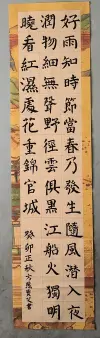 好雨知時節當春乃發生隨風潛入夜
潤物細無聲野徑雲俱黑江船火獨明
曉看紅濕處花重錦官城
癸卯正秋